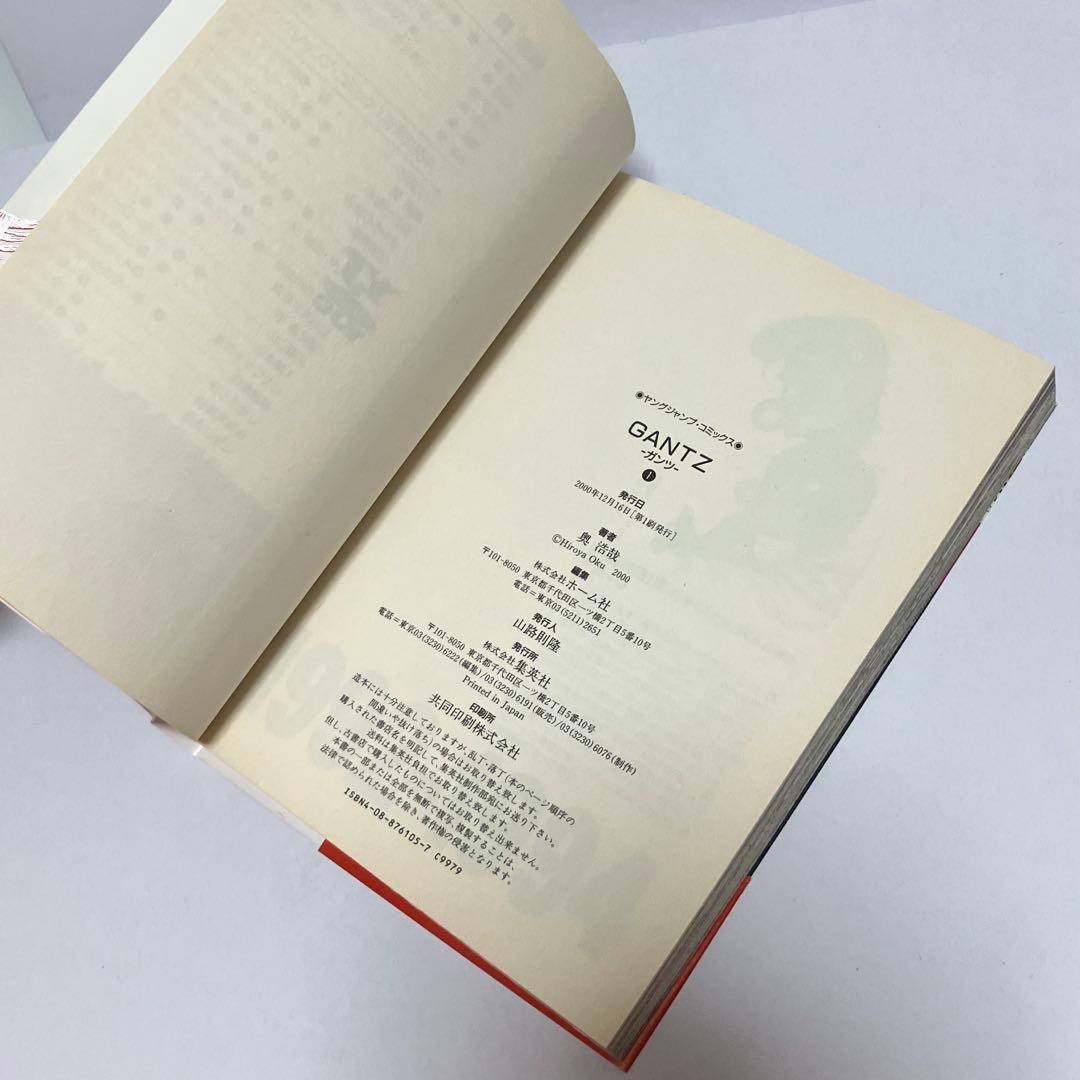 ◉ヤングジャンプ・コミックス◉
GANTZ
-ガンツ-
1
発行日
2000年12月16日[第1刷発行]
著者
奥 浩哉
©Hiroya Oku 2000
編集
株式会社 ホーム社
〒101-8050 東京都千代田区一ツ橋2丁目5番10号
電話=東京03(5211)2651
発行人
山路則隆
発行所
株式会社 集英社
〒101-8050 東京都千代田区一ツ橋2丁目5番10号
電話=東京03(3230)6222(編集)/03(3230)6191(販売)/03(3230)6076(制作)
Printed in Japan
印刷所
共同印刷株式会社
造本には十分注意しておりますが、乱丁・落丁(本のページ順序の
間違いや抜け落ち)の場合はお取り替え致します。
購入された書店名を明記して、集英社制作部宛にお送り下さい。
送料は集英社負担でお取り替え致します。
但し、古書店で購入したものについてはお取り替え出来ません。
本書の一部または全部を無断で複写、複製することは、
法律で認められた場合を除き、著作権の侵害となります。
ISBN4-08-876105-7 C9979